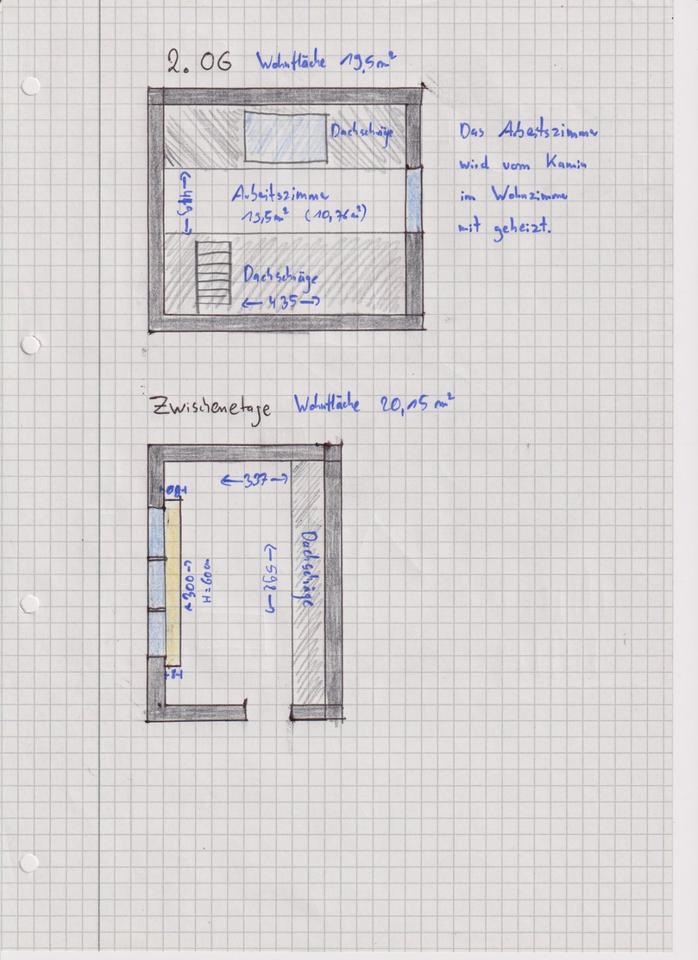 2. OG Wohnfläche 19,5m²
Dachschräge
Das Arbeitszimmer
wird vom Kamin
im Wohnzimmer
mit geheizt.
449
Arbeitszimmer
19,5m² (10,76m²)
Dachschräge
435
Zwischenetage Wohnfläche 20,15 m²
337
Dachschräge
592
300
H=60cm